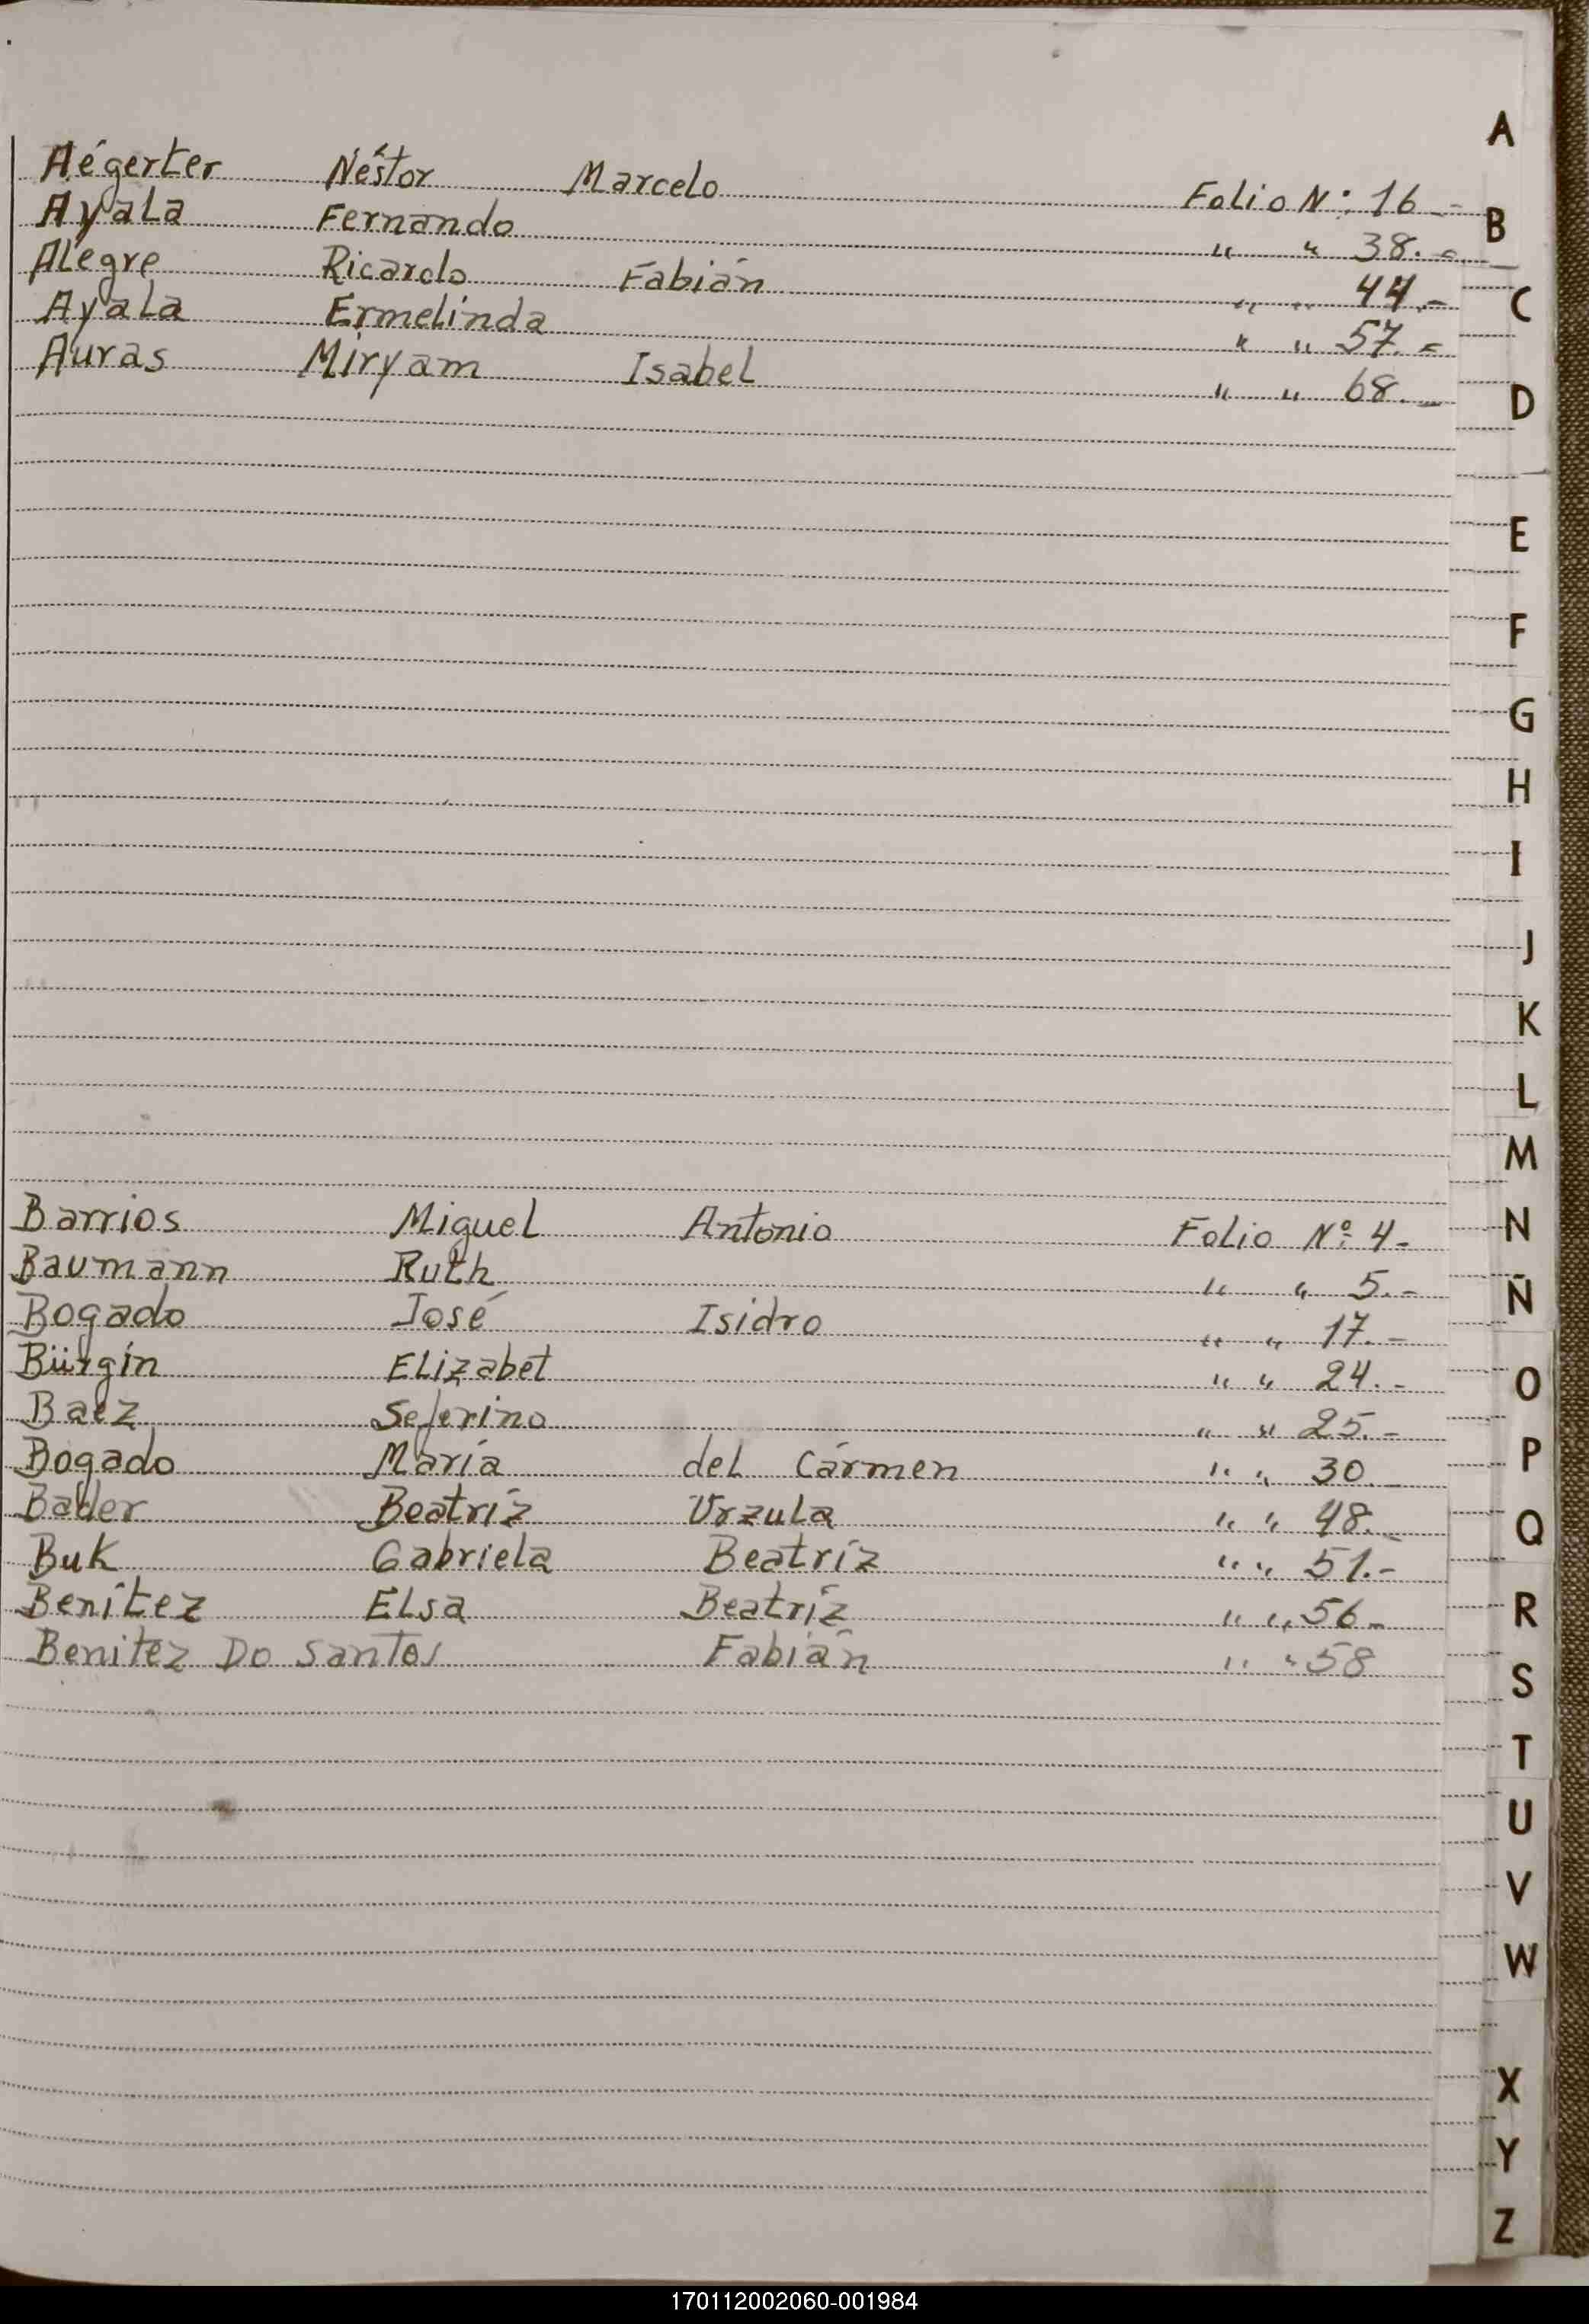 A
Aégerter Néstor Marcelo Folio N: 16.-
B
Ayala Fernando " " 38.-
Alegre Ricardo Fabián " " 44.-
C
Ayala Ermelinda " " 57.-
Auras Miryam Isabel " " 68.-
D
E
F
G
H
I
J
K
L
M
Barrios Miguel Antonio Folio Nº: 4-
N
Baumann Ruth " " 5.-
Ñ
Bogado José Isidro " " 17.-
Bürgin Elizabet " " 24.-
O
Baez Seferino " " 25.-
Bogado María del Cármen " " 30.-
P
Beatríz Urzula " " 48.-
Q
Buk Gabriela Beatríz " " 51.-
Benítez Elsa Beatríz " " 56-
R
Benitez Do Santos Fabián " " 58
S
T
U
V
W
X
Y
Z
170112002060-001984